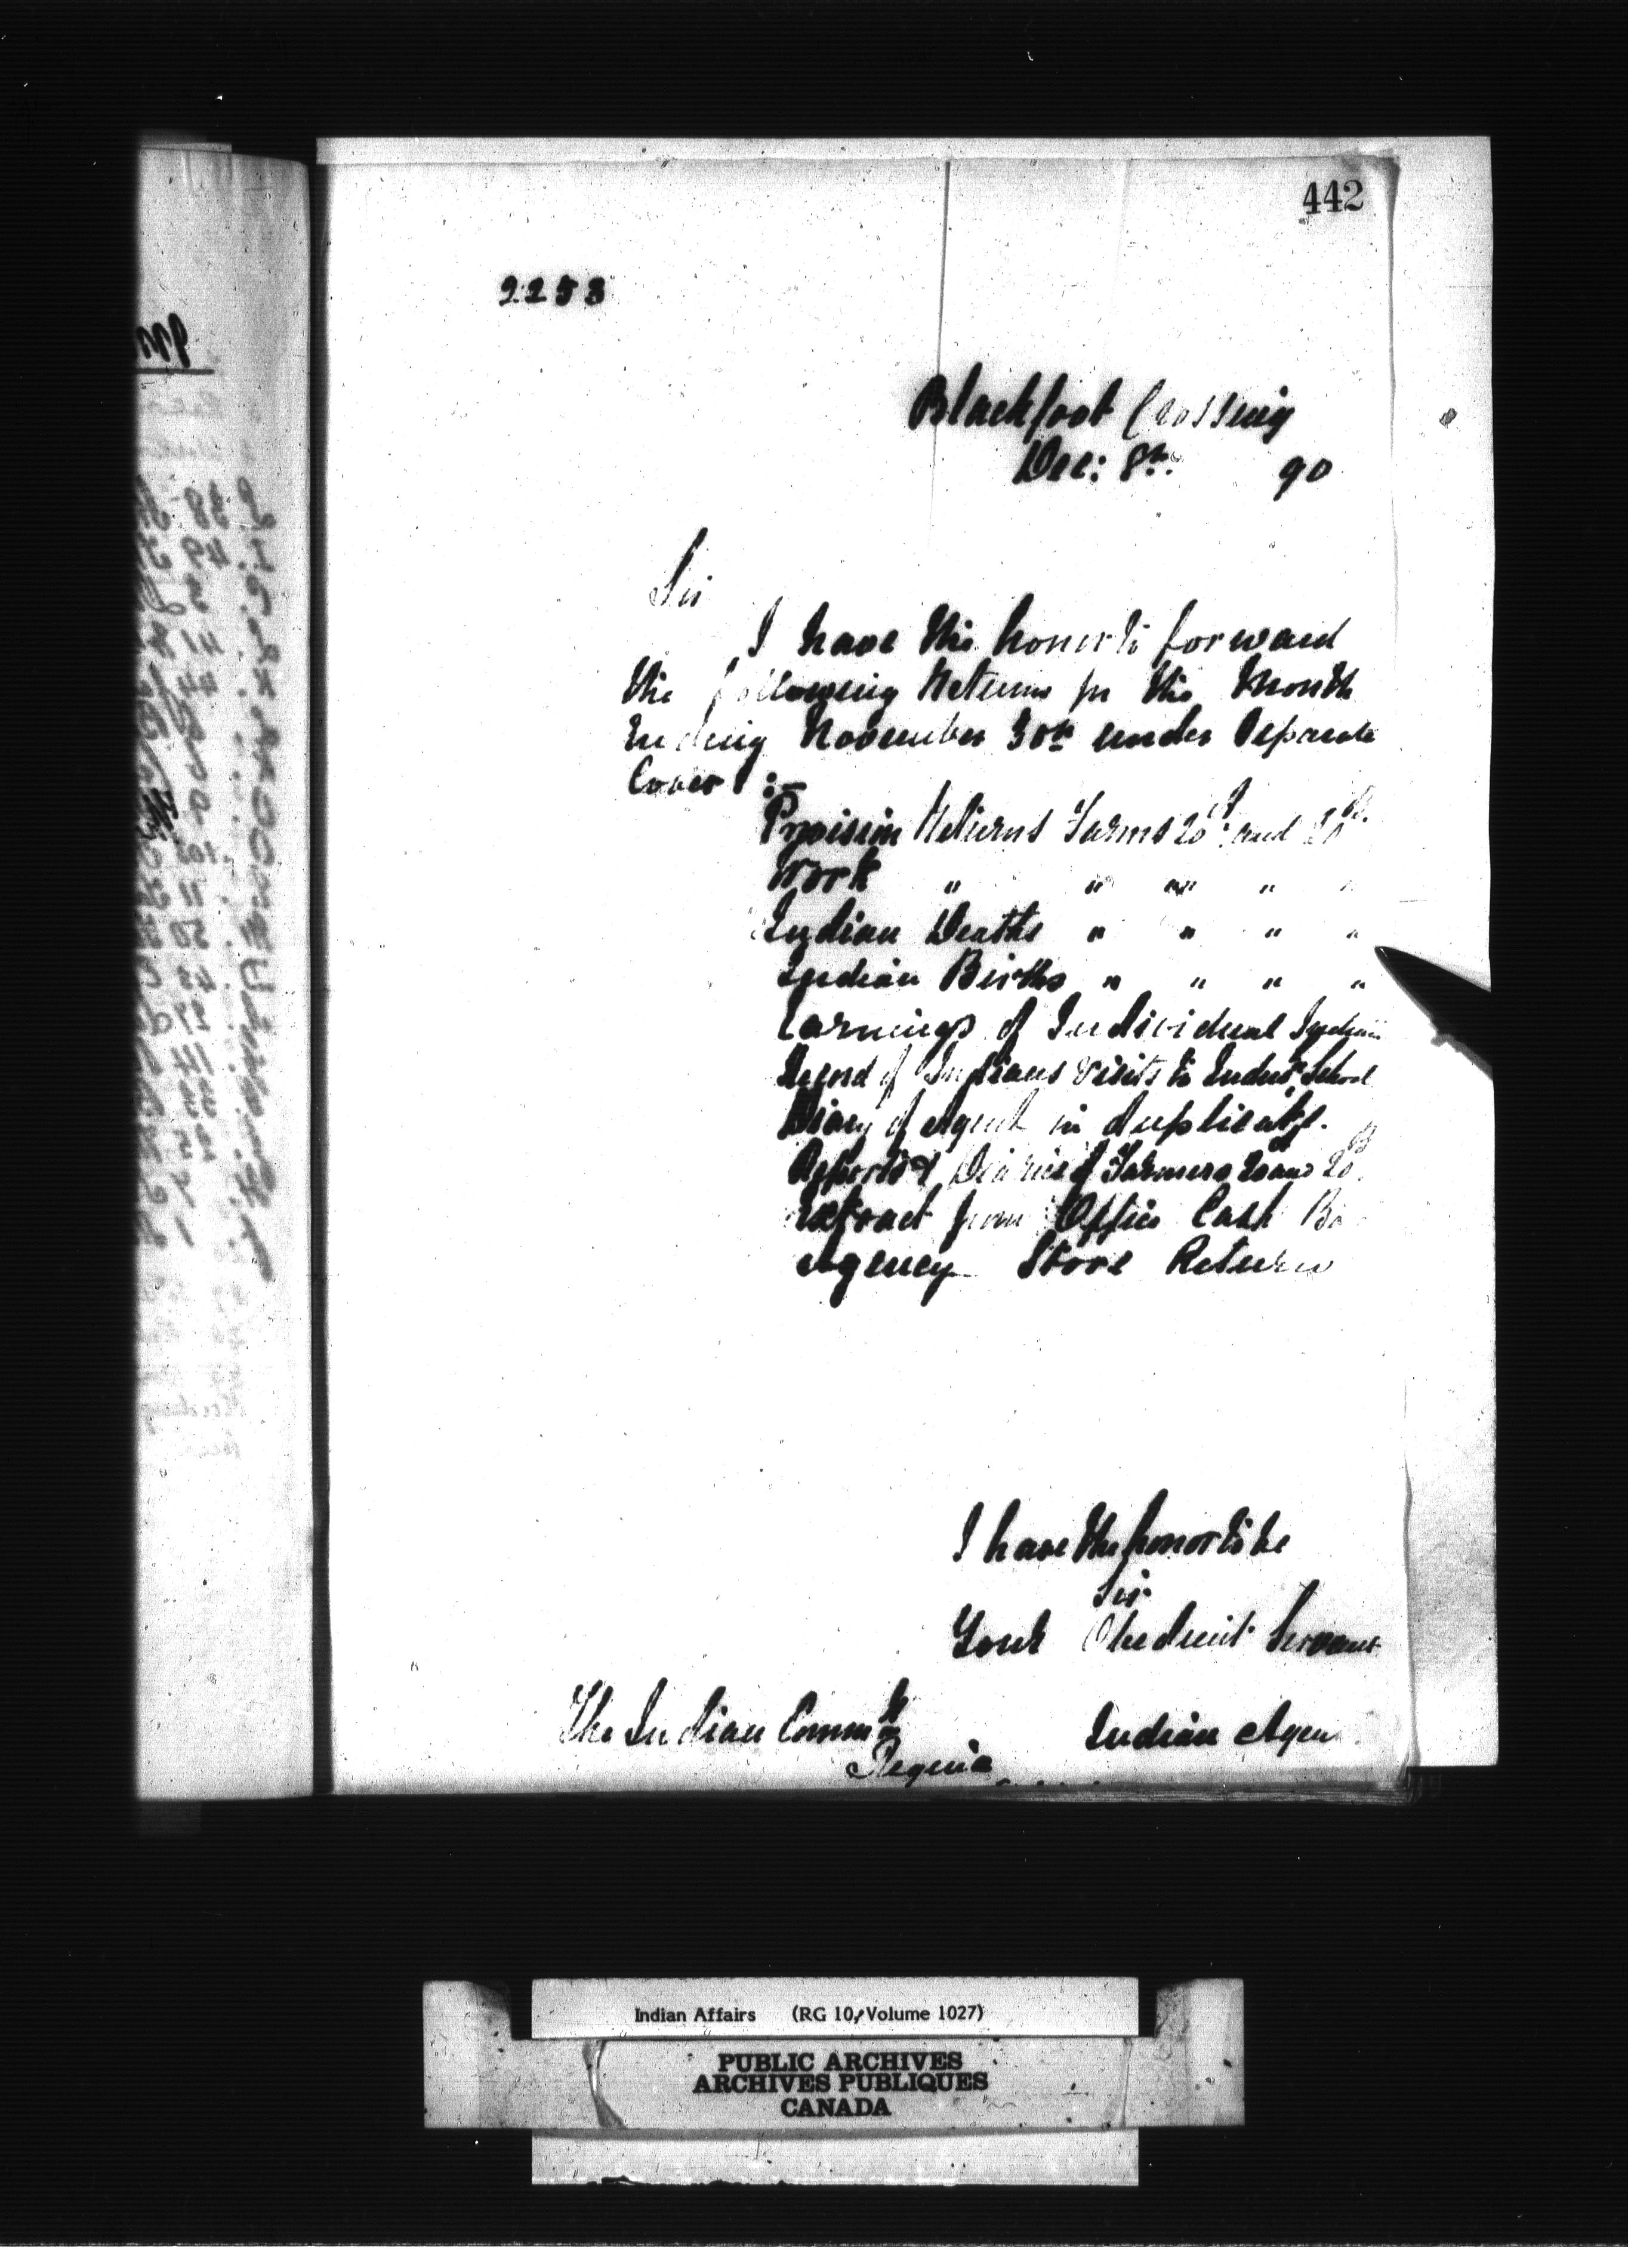 442
2253
Blackfoot Crossing
Dec: 8th. 90
Sir
I have the honor to forward
the following Returns for the Month
Ending November 30th under Separate
Cover :-
Provision Returns Farms 20A and 20B.
Work " " " " "
Indian Deaths " " " "
Indian Births " " " "
Earnings of Individual Indians
Record of Indians visits to Indust. School
Diary of Agent in duplicate.
Reports & Diaries of Farmers 20A and 20B.
Extract from Office Cash
Agency Store Return
I have the honor to be
Sir
Your Obedient Servant
The Indian Commr Indian Agen
Regina
Indian Affairs (RG 10, Volume 1027)
PUBLIC ARCHIVES
ARCHIVES PUBLIQUES
CANADA